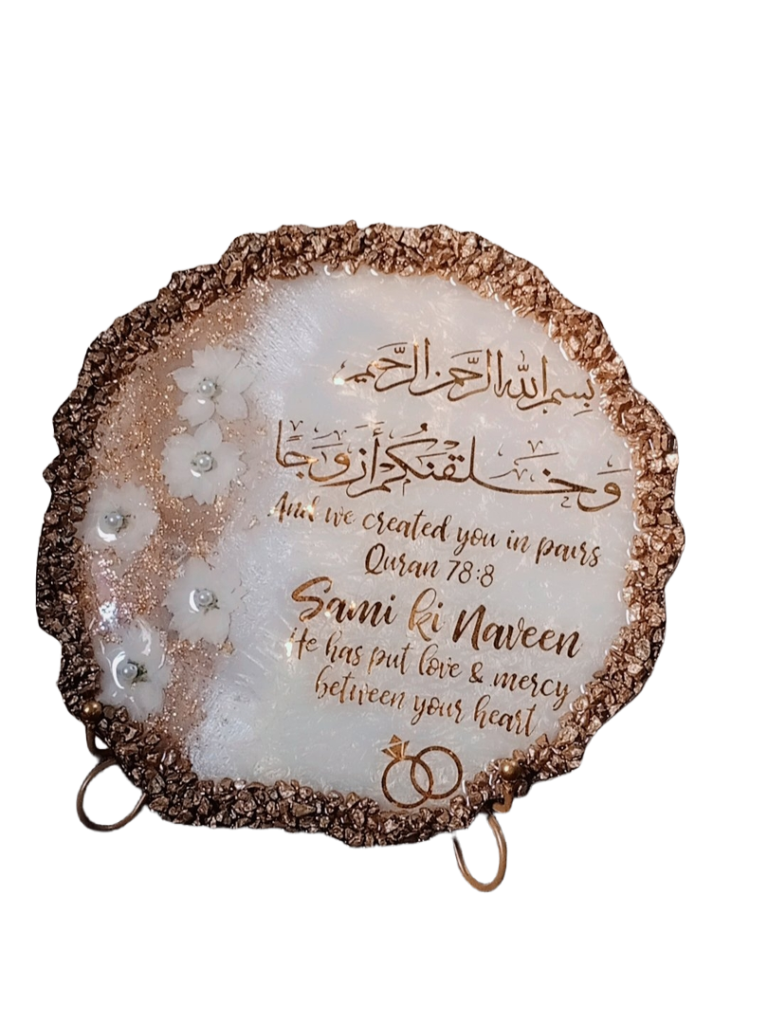 بسم الله الرحمن الرحيم
وَخَلَقْنَٰكُمْ أَزْوَٰجًا
And we created you in pairs
Quran 78:8
Sami ki Naveen
He has put love & mercy
between your heart